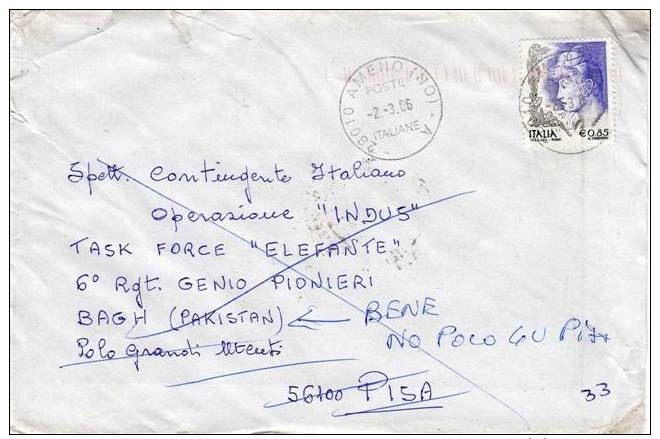 28010 AMENO (NO) * A
POSTE
-2.-3.06
ITALIANE
ITALIA
€0,85
Spett. Contingente Italiano
Operazione "INDUS"
TASK FORCE "ELEFANTE"
6° Rgt. GENIO PIONIERI
BAGH (PAKISTAN) ← BENE
NO POLO GU PISA
Polo Grandi Utenti
56100 PISA
33